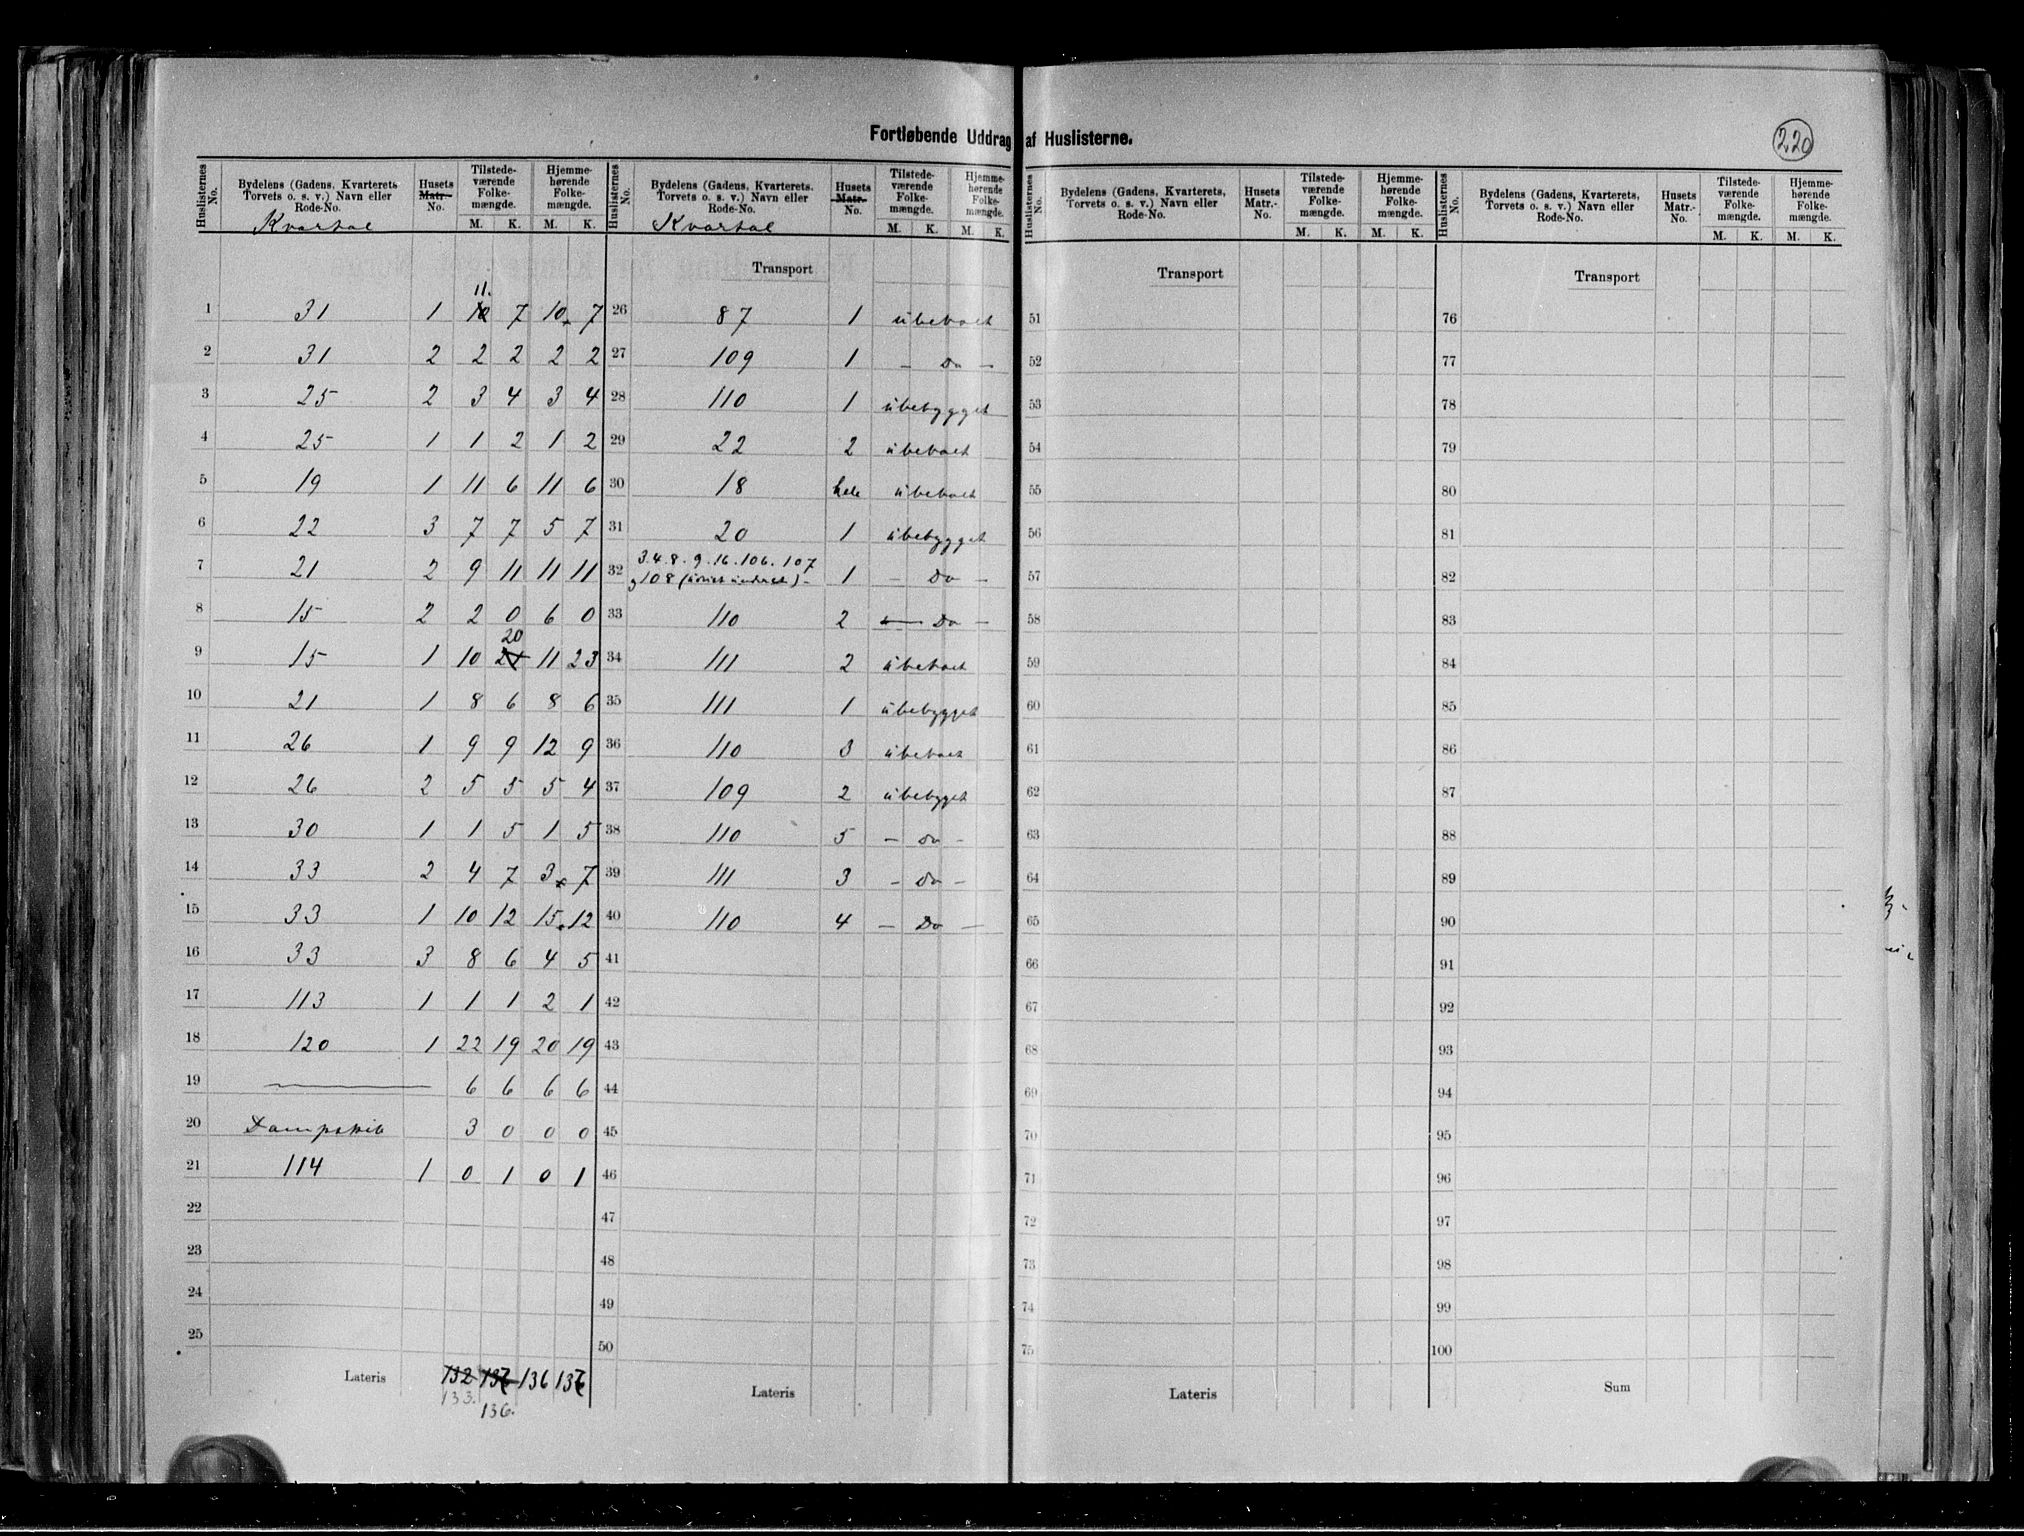 Fortløbende Uddrag af Huslisterne.
220
Huslisternes No. Bydelens (Gadens, Kvarterets Torvets o. s. v.) Navn eller Rode-No. Husets Matr.-No. Tilstede-værende Folke-mængde. Hjemme-hørende Folke-mængde.
Kvartal M. K. M. K.
Huslisternes No. Bydelens (Gadens, Kvarterets. Torvets o. s. v.) Navn eller Rode-No. Husets Matr.-No. Tilstede-værende Folke-mængde. Hjemme-hørende Folke-mængde.
Kvartal M. K. M. K.
Huslisternes No. Bydelens (Gadens, Kvarterets, Torvets o. s. v.) Navn eller Rode-No. Husets Matr.-No. Tilstede-værende Folke-mængde. Hjemme-hørende Folke-mængde.
M. K. M. K.
Huslisternes No. Bydelens (Gadens, Kvarterets, Torvets o. s. v.) Navn eller Rode-No. Husets Matr.-No. Tilstede-værende Folke-mængde. Hjemme-hørende Folke-mængde.
M. K. M. K.
1 31 1 11. 10 7 10 7
2 31 2 2 2 2 2
3 25 2 3 4 3 4
4 25 1 1 2 1 2
5 19 1 11 6 11 6
6 22 3 7 7 5 7
7 21 2 9 11 11 11
8 15 2 2 0 6 0
9 15 1 10 20 21 11 23
10 21 1 8 6 8 6
11 26 1 9 9 12 9
12 26 2 5 5 5 4
13 30 1 1 5 1 5
14 33 2 4 7 3 7
15 33 1 10 12 15 12
16 33 3 8 6 4 5
17 113 1 1 1 2 1
18 120 1 22 19 20 19
19 — 6 6 6 6
20 Dampskib 3 0 0 0
21 114 1 0 1 0 1
22
23
24
25
Lateris 132 136 136 136
133.
136.
Transport
26 87 1 ubeboet
27 109 1 - Do -
28 110 1 ubebygget
29 22 2 ubeboet
30 18 hele ubeboet
31 20 1 ubebygget
32 3.4.8.9.16.106.107
108 1 - Do -
33 110 2 - Do -
34 111 2 ubeboet
35 111 1 ubebygget
36 110 3 ubeboet
37 109 2 ubebygget
38 110 5 - Do -
39 111 3 - Do -
40 110 4 - Do -
41
42
43
44
45
46
47
48
49
50
Lateris
Transport
51
52
53
54
55
56
57
58
59
60
61
62
63
64
65
66
67
68
69
70
71
72
73
74
75
Lateris
Transport
76
77
78
79
80
81
82
83
84
85
86
87
88
89
90
91
92
93
94
95
96
97
98
99
100
Sum